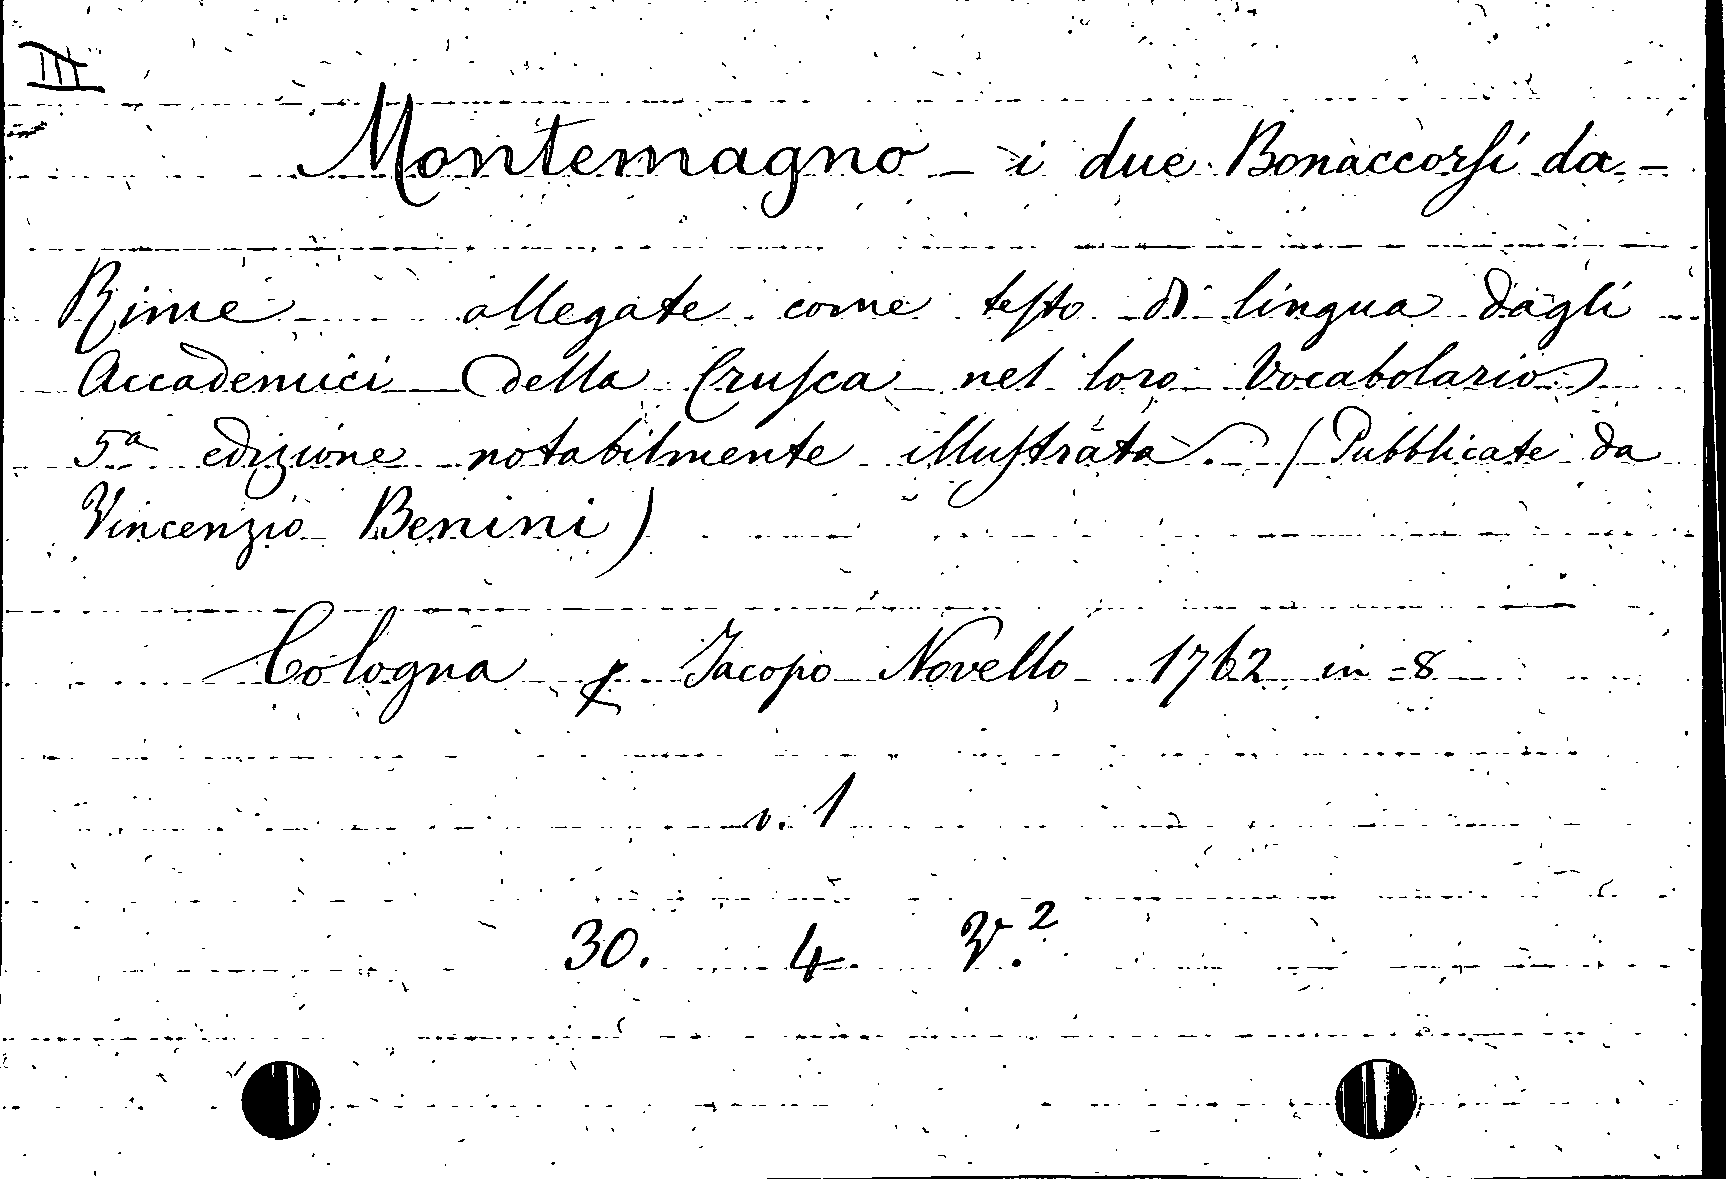 III
Montemagno - i due Bonaccorsi da -
Rime allegate come testo di lingua dagli
Accademici della Crusca nel loro Vocabolario
5ª edizione notabilmente illustrata. (Pubblicate da
Vincenzio Benini)
Cologna p Jacopo Novello 1762 in =8
v. 1
30. 4. V.²